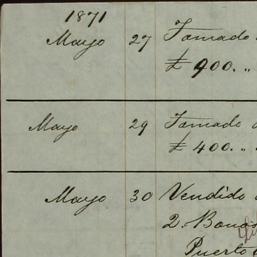 1871
Mayo 27 Tomado
£ 900. „
Mayo 29 Tomado
£ 400. „ „
Mayo 30 Vendido
2. Bonos
Puerto